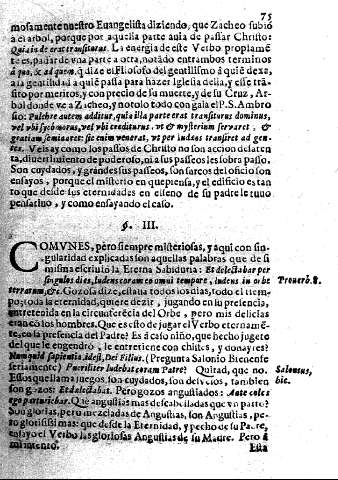 75
mosamente nuestro Euangelista diziendo, que Zacheo subiò
al arbol, porque por aquella parte auia de passar Christo:
Quia inde erat transiturus. La energia de este Verbo propiamẽ
te es, passar de vna parte a otra, notādo entrambos terminos
à quo, & ad quem, q̃ dize el Filosofo del gentilismo à quiẽ dexa,
a la gentilidad a quiẽ passa para hazer Iglesia della, y esse trã-
sito por meritos, y con precio de su muerte, y de su Cruz, Ar-
bol donde ve a Zacheo, y notolo todo con gala el P. S. Ambro
sio: Pulchre autem additur, quia illa parte erat transiturus dominus,
vel vbi sychomorus, vel vbi crediturus, vt & mysterium seruaret, &
gratiam seminaret: sic enim venerat, vt per iudeos transiret ad gen-
tes. Veis ay como los passos de Christo no son accion delaten
ta, diuertimiento de poderoso, ni a sus passeos les sobra passo.
Son cuydados, y grandes sus passeos, son sarcos del oficio son
ensayos, porque el misterio en que piensa, y el edificio es tan
to que desde sus eternidades en el seno de su padre le tuuo
pensatiuo, y como ensayando el caso.
§. III.
COMVNES, pero siempre misteriosas, y aqui con sin-
gularidad explicadas son aquellas palabras que de si
misma escriuiò la Eterna Sabiduria: Et delectabar per
singulos dies, ludens coram eo omni tempore, ludens in orbe
Prouerb. 8.
terrarum, &c. Gozosa dize, estaua todos los dias, todo el tiem-
po, toda la eternidad, quiere dezir, jugando en su presencia,
entretenida en la circunferēcia del Orbe, pero mis delicias
eran cō los hombres. Que es esto de jugar el Verbo eternamē-
te, en la presencia del Padre? Es acaso niño, que hecho jugete
del que le engendrò, le entretiene con chistes, y donayres?
Numquid sapientia idest, Dei Filius. (Pregunta Salonio Bienense
seriamente) Pueriliter ludebat coram Patre? Quitad, que no.
Salonius,
hic.
Essos que llama juegos, son cuydados, son desvelos, tambien
son gozos: Et delectabar. Pero gozos angustiados: Ante colles
ego parturiebar. Que angustias mas descabelladas que vn parto?
Son glorias, pero mezcladas de Angustias, son Angustias, pe-
ro gloriosissimas: que desde la Eternidad, y pecho de su Padre,
ensayò el Verbo las gloriosas Angustias de su Madre. Pero à
mi intento.
Esta